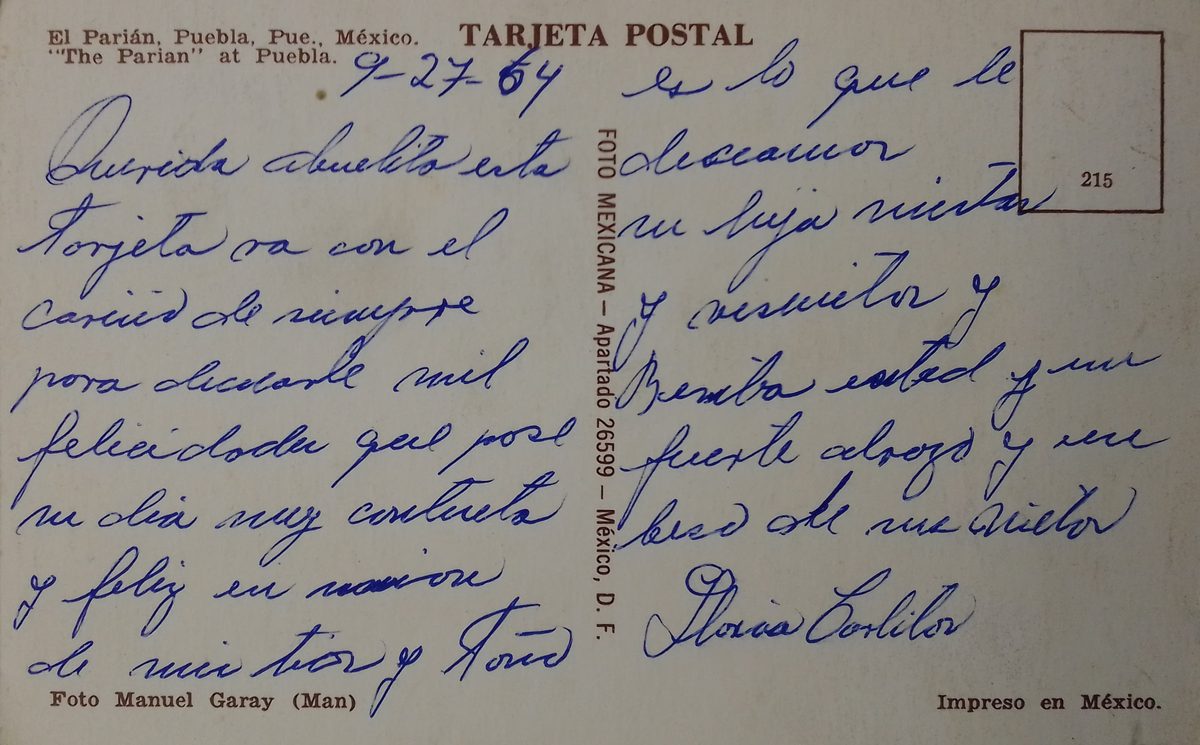 El Parián, Puebla, Pue., México.
"The Parian" at Puebla.
TARJETA POSTAL
9-27-64
Querida abuelita esta
tarjeta va con el
cariño de siempre
para desearle mil
felicidades que pase
su dia muy contenta
y feliz en union
de mis tios y Toño
es lo que le
deseamos
su hija nietas
y visnietos y
Reciba usted y un
fuerte abrazo y un
beso de sus nietos
Gloria Carlitos
FOTO MEXICANA – Apartado 26599 – México, D. F.
215
Foto Manuel Garay (Man)
Impreso en México.